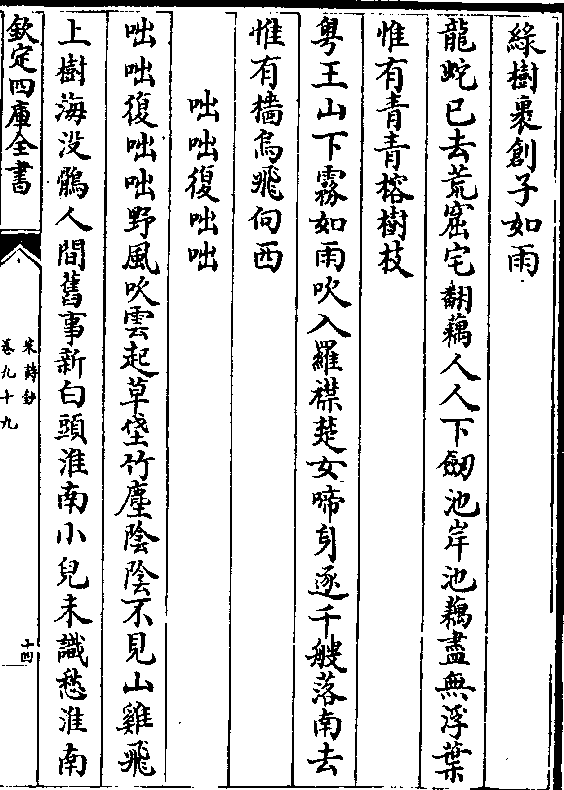 綠樹裹創子如雨
龍蛇已去荒窟宅翻藕人人下劔池岸池藕盡無浮葉
惟有青青榕樹枝
粤王山下霧如雨吹入羅襟楚女啼身逐千艘落南去
惟有檣烏飛向西
咄咄復咄咄
咄咄復咄咄野風吹雲起草垡竹塵陰陰不見山雞飛
上樹海没鶻人間舊事新白頭淮南小兒未識愁淮南
欽定四庫全書
宋詩鈔
卷九十九
十四